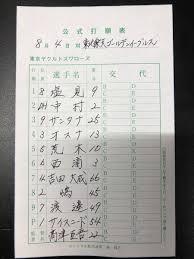 公式打順表
8月4日 対 東北楽天ゴールデンイーグルス
東京ヤクルトスワローズ
選手名 交代
1 8 塩見 9
2 DH 中村 2
3 9 サンタナ 25
4 3 オスナ 13
5 5 荒木 10
6 6 西浦 3
7 4 吉田大成 66
8 2 嶋 45
9 7 渡邉 49
P 1 サイスニード 54
高津臣吾 22